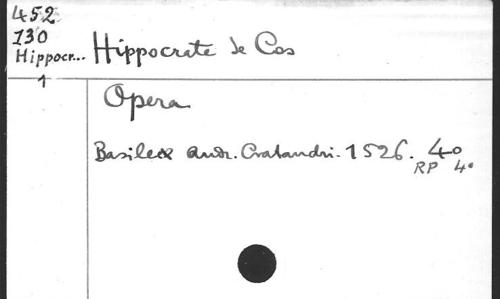 452
130
Hippocr...
1
Hippocrate de Cos
Opera
Basileæ Andr. Cratandri. 1526. 4°
RP 4°